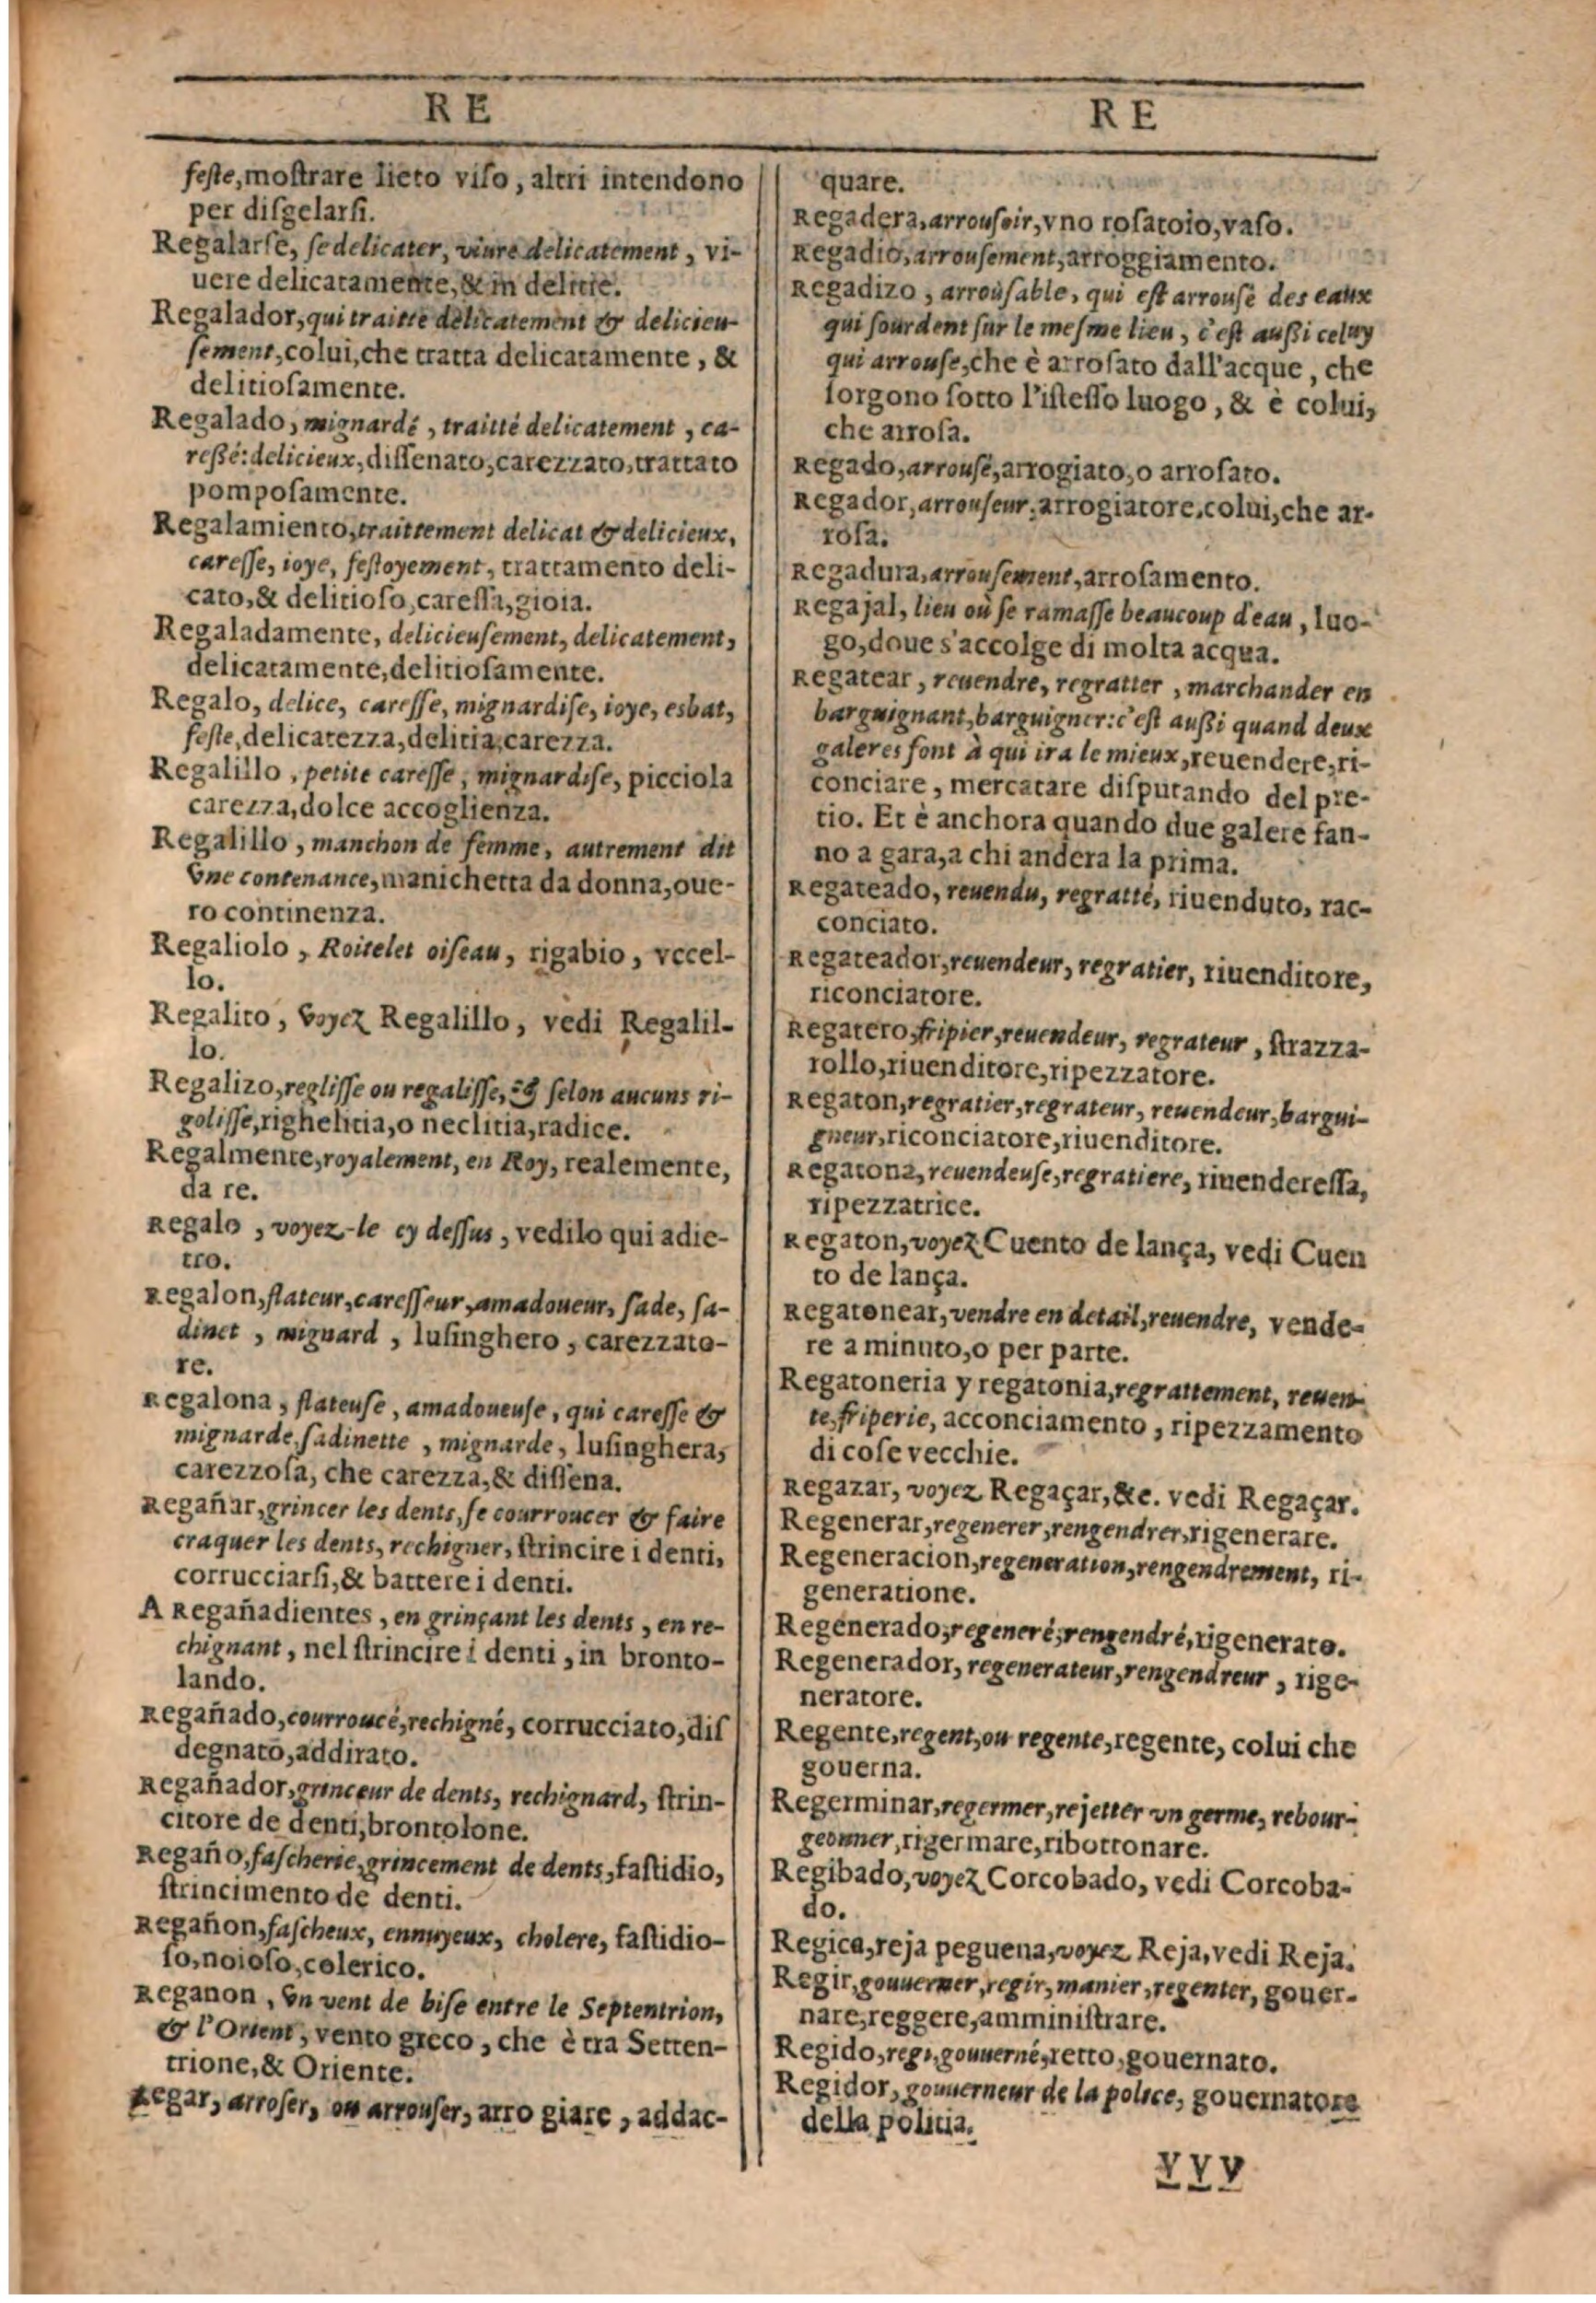 RE
feste, mostrare lieto viso, altri intendono
per disgelarsi.
Regalarse, se delicater, viure delicatement, vi-
uere delicatamente, & in delitie.
Regalador, qui traitte delicatement & delicieu-
sement, colui, che tratta delicatamente, &
delitiosamente.
Regalado, mignardé, traitté delicatement, ca-
ressé: delicieux, dissenato, carezzato, trattato
pomposamente.
Regalamiento, traittement delicat & delicieux,
caresse, ioye, festoyement, trattamento deli-
cato, & delitioso, caressa, gioia.
Regaladamente, delicieusement, delicatement,
delicatamente, delitiosamente.
Regalo, delice, caresse, mignardise, ioye, esbat,
feste, delicatezza, delitia, carezza.
Regalillo, petite caresse, mignardise, picciola
carezza, dolce accoglienza.
Regalillo, manchon de femme, autrement dit
vne contenance, manichetta da donna, oue-
ro continenza.
Regaliolo, Roitelet oiseau, rigabio, vccel-
lo.
Regalito, voyez Regalillo, vedi Regalil-
lo.
Regalizo, reglisse ou regalisse, & selon aucuns ri-
golisse, righelitia, o neclitia, radice.
Regalmente, royalement, en Roy, realemente,
da re.
Regalo, voyez-le cy dessus, vedilo qui adie-
tro.
Regalon, flateur, caresseur, amadoueur, sade, sa-
dinet, mignard, lusinghero, carezzato-
re.
Regalona, flateuse, amadoueuse, qui caresse &
mignarde, sadinette, mignarde, lusinghera,
carezzosa, che carezza, & dissena.
Regañar, grincer les dents, se courroucer & faire
craquer les dents, rechigner, strincire i denti,
corrucciarsi, & battere i denti.
A Regañadientes, en grinçant les dents, en re-
chignant, nel strincire i denti, in bronto-
lando.
Regañado, courroucé, rechigné, corrucciato, dis
degnato, addirato.
Regañador, grinceur de dents, rechignard, strin-
citore de denti, brontolone.
Regaño, fascherie, grincement de dents, fastidio,
strincimento de denti.
Regañon, fascheux, ennuyeux, cholere, fastidio-
so, noioso, colerico.
Reganon, vn vent de bise entre le Septentrion,
& l'Orient, vento greco, che è tra Setten-
trione, & Oriente.
Regar, arroser, ou arrouser, arro giare, addac-
RE
quare.
Regadera, arrousoir, vno rosatoio, vaso.
Regadio, arrousement, arroggiamento.
Regadizo, arrousable, qui est arrousé des eaux
qui sourdent sur le mesme lieu, c'est aussi celuy
qui arrouse, che è arrosato dall'acque, che
sorgono sotto l'istesso luogo, & è colui,
che arrosa.
Regado, arrousé, arrogiato, o arrosato.
Regador, arrouseur, arrogiatore, colui, che ar-
rosa.
Regadura, arrousement, arrosamento.
Regajal, lieu où se ramasse beaucoup d'eau, luo-
go, doue s'accolge di molta acqua.
Regatear, reuendre, regratter, marchander en
barguignant, barguigner: c'est aussi quand deux
galeres font à qui ira le mieux, reuendere, ri-
conciare, mercatare disputando del pre-
tio. Et è anchora quando due galere fan-
no a gara, a chi andera la prima.
Regateado, reuendu, regratté, riuenduto, rac-
conciato.
Regateador, reuendeur, regratier, riuenditore,
riconciatore.
Regatero, fripier, reuendeur, regrateur, strazza-
rollo, riuenditore, ripezzatore.
Regaton, regratier, regrateur, reuendeur, bargui-
gneur, riconciatore, riuenditore.
Regatona, reuendeuse, regratiere, riuenderessa,
ripezzatrice.
Regaton, voyez Cuento de lança, vedi Cuen
to de lança.
Regatonear, vendre en detail, reuendre, vende-
re a minuto, o per parte.
Regatoneria y regatonia, regrattement, reuen-
te, friperie, acconciamento, ripezzamento
di cose vecchie.
Regazar, voyez Regaçar, &c. vedi Regaçar.
Regenerar, regenerer, rengendrer, rigenerare.
Regeneracion, regeneration, rengendrement, ri-
generatione.
Regenerado, regeneré, rengendré, rigenerato.
Regenerador, regenerateur, rengendreur, rige-
neratore.
Regente, regent, ou regente, regente, colui che
gouerna.
Regerminar, regermer, rejetter vn germe, rebour-
geonner, rigermare, ribottonare.
Regibado, voyez Corcobado, vedi Corcoba-
do.
Regica, reja peguena, voyez Reja, vedi Reja.
Regir, gouuerner, regir, manier, regenter, gouer-
nare, reggere, amministrare.
Regido, regi, gouuerné, retto, gouernato.
Regidor, gouuerneur de la police, gouernatore
della politia.
VVV